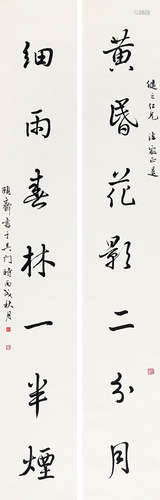 黄昏花影二分月
健之仁兄 法家正遗
细雨春林一半烟
颐斋书于吴门时丙戌秋月